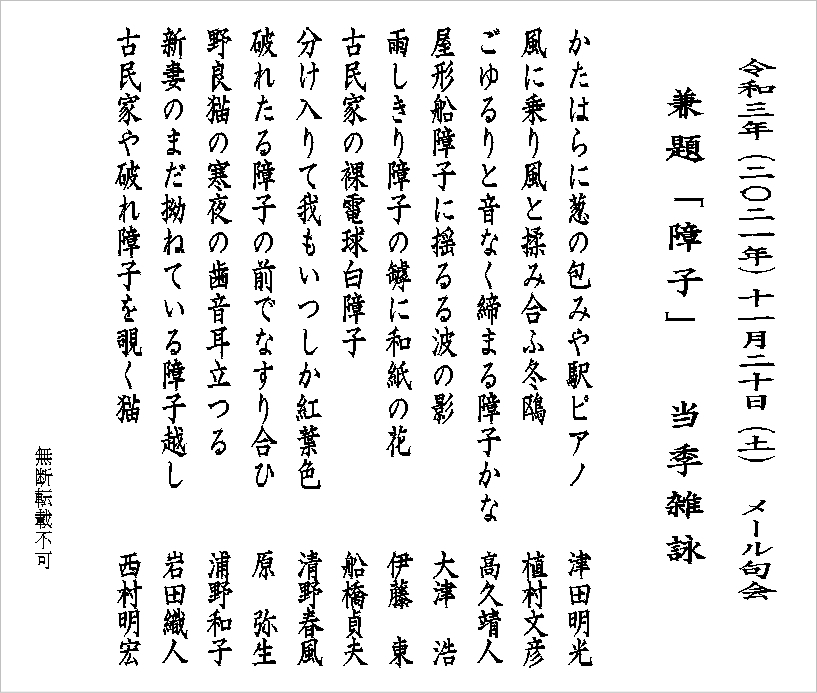 令和三年（二〇二一年）十一月二十日（土）　メール句会
兼題「障子」　当季雑詠
かたはらに葱の包みや駅ピアノ　津田明光
風に乗り風と揉み合ふ冬鴎　植村文彦
ごゆるりと音なく締まる障子かな　高久靖人
屋形船障子に揺るる波の影　大津　浩
雨しきり障子の罅に和紙の花　伊藤　東
古民家の裸電球白障子　船橋貞夫
分け入りて我もいつしか紅葉色　清野春風
破れたる障子の前でなすり合ひ　原　弥生
野良猫の寒夜の歯音耳立つる　浦野和子
新妻のまだ拗ねている障子越し　岩田織人
古民家や破れ障子を覗く猫　西村明宏
無断転載不可